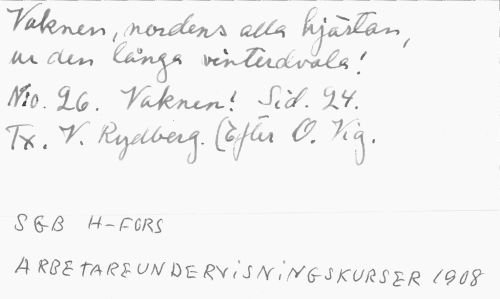 Vaknen, nordens alla hjärtan,
ur den långa vinterdvala!
N:o. 26. Vaknen! Sid. 24.
Tx. V. Rydberg. (Efter O. Vig.
SGB H-FORS
ARBETAREUNDERVISNINGSKURSER 1908